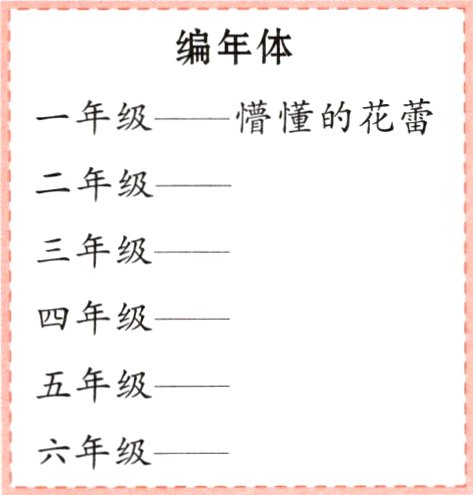 编年体
一年级——懵懂的花蕾
二年级——
三年级——
四年级——
五年级——
六年级——